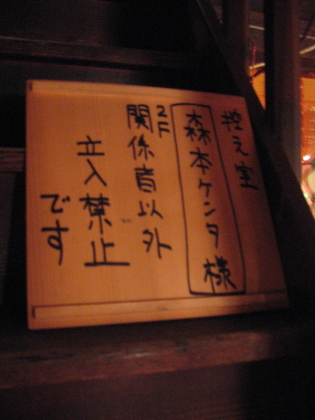 控え室
森本ケンタ様
2F
関係者以外
立入禁止
です